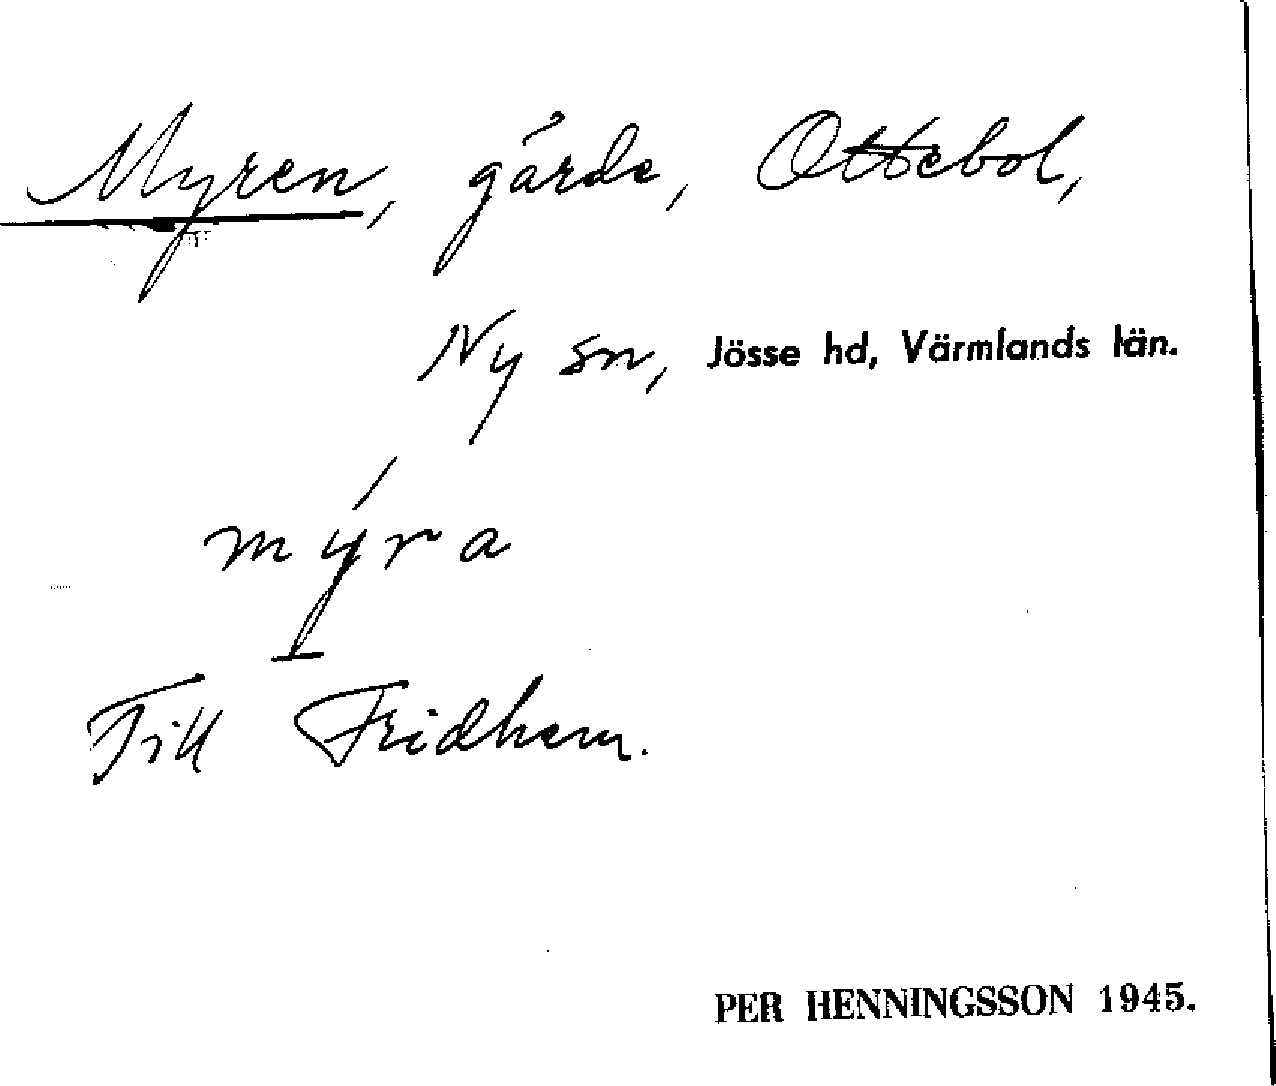 Myren, gärde, Ottebol,
Ny sn, Jösse hd, Värmlands län.
mýra
Till Fridhem.
PER HENNINGSSON 1945.